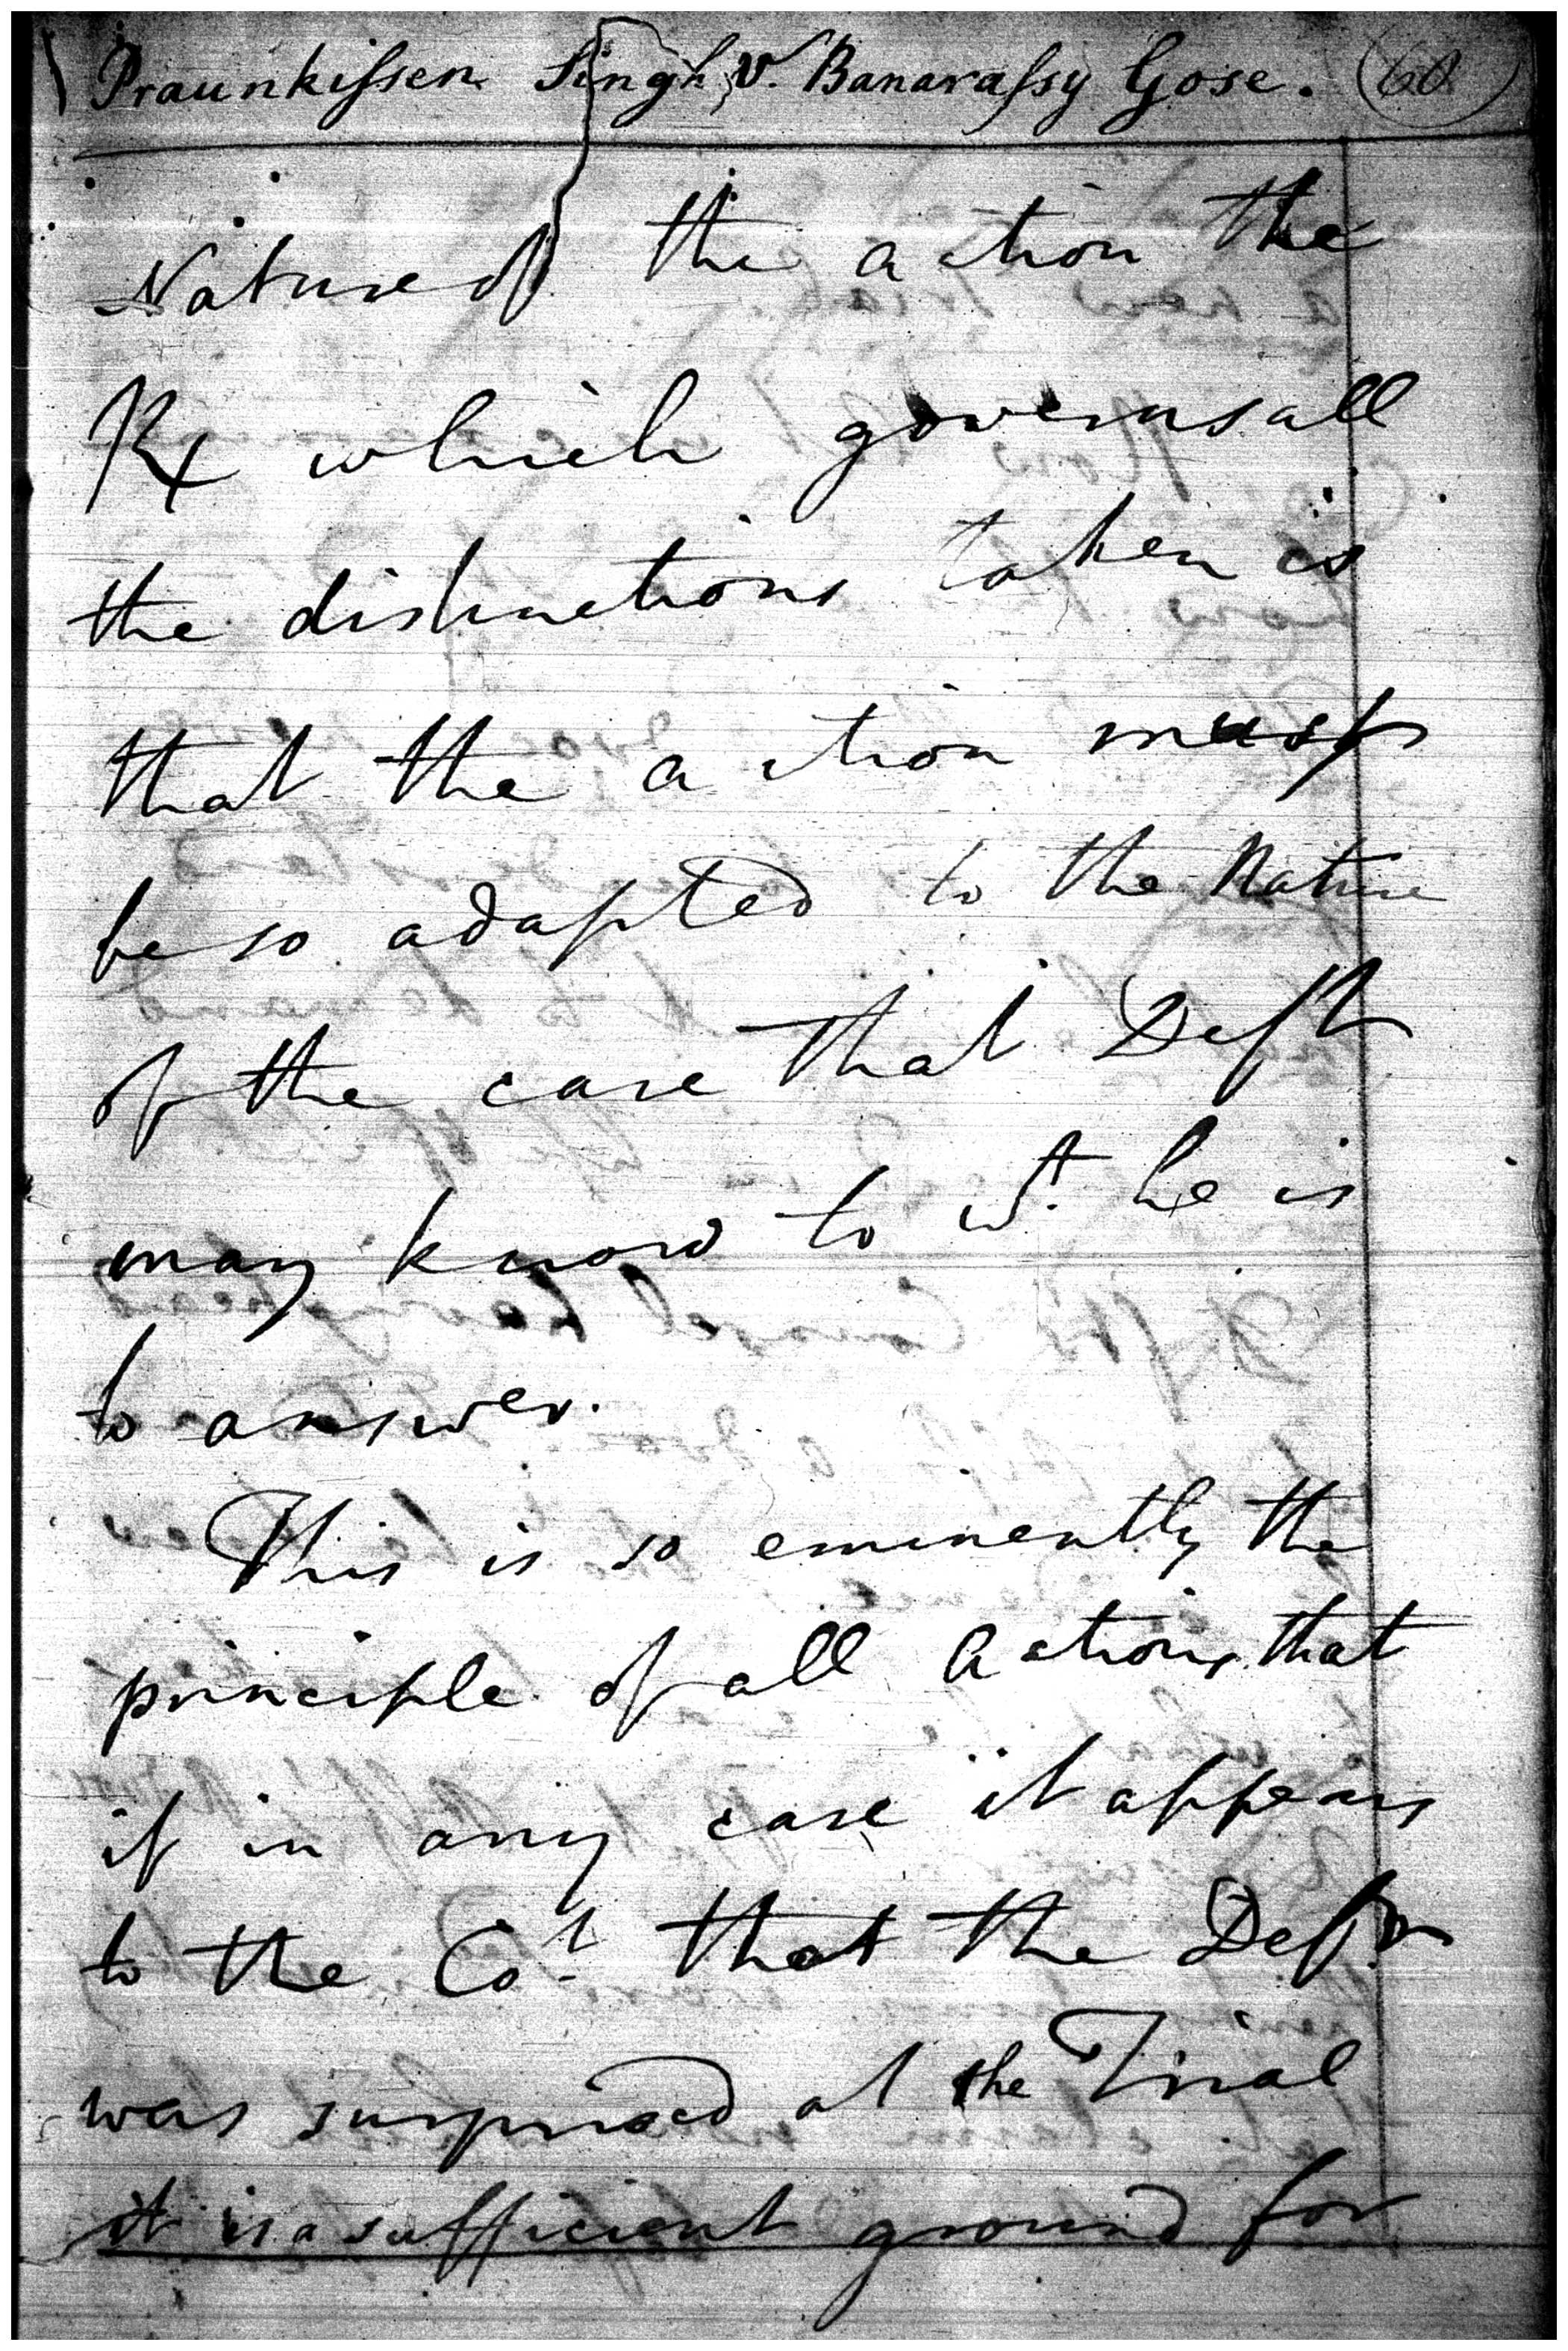 Praunkissen Singh v. Banarassy Gose. (60)
Nature of the action the
which governs all
the distinctions taken is
that the action must
be so adapted to the Nature
of the case that Deft
may know to wt. he is
to answer.
This is so eminently the
principle of all Actions that
if in any case it appears
to the Cot. that the Deft
was surprised at the Trial
it is a sufficient ground for